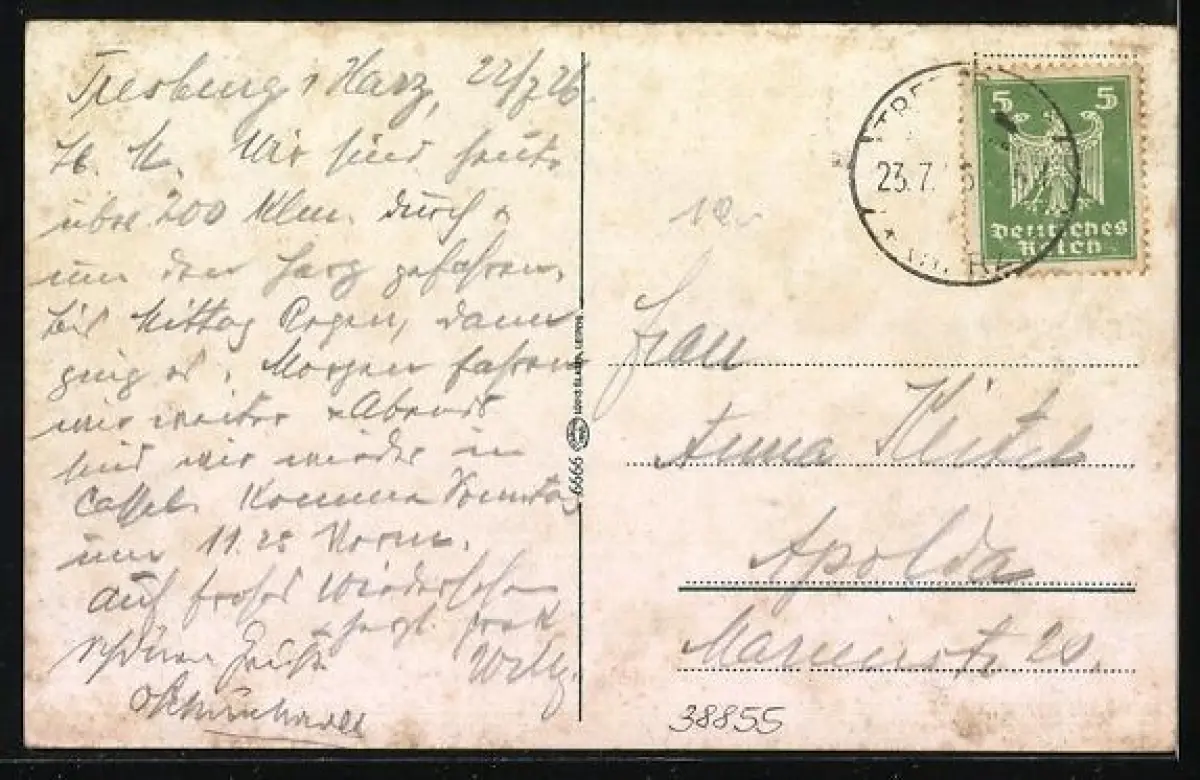 Treseburg i Harz, 22/7 26.
Wir sind heute
über 200 Klm. durch &
um den Harz gefahren,
bis Mittag Regen, dann
ging es. Morgen fahren
wir weiter & Abends
sind wir wieder in
Cassel. Komme Sonntag
um 11.25 Vorm.
Auf frohes Wiedersehn
& herzl.
schönen Grüße Willy.
5 5
Deutsches
Reich
23.7.
Frau
Anna
Apolda
Marienstr 28.
6666
LOUIS GLASER, LEIPZIG
38855